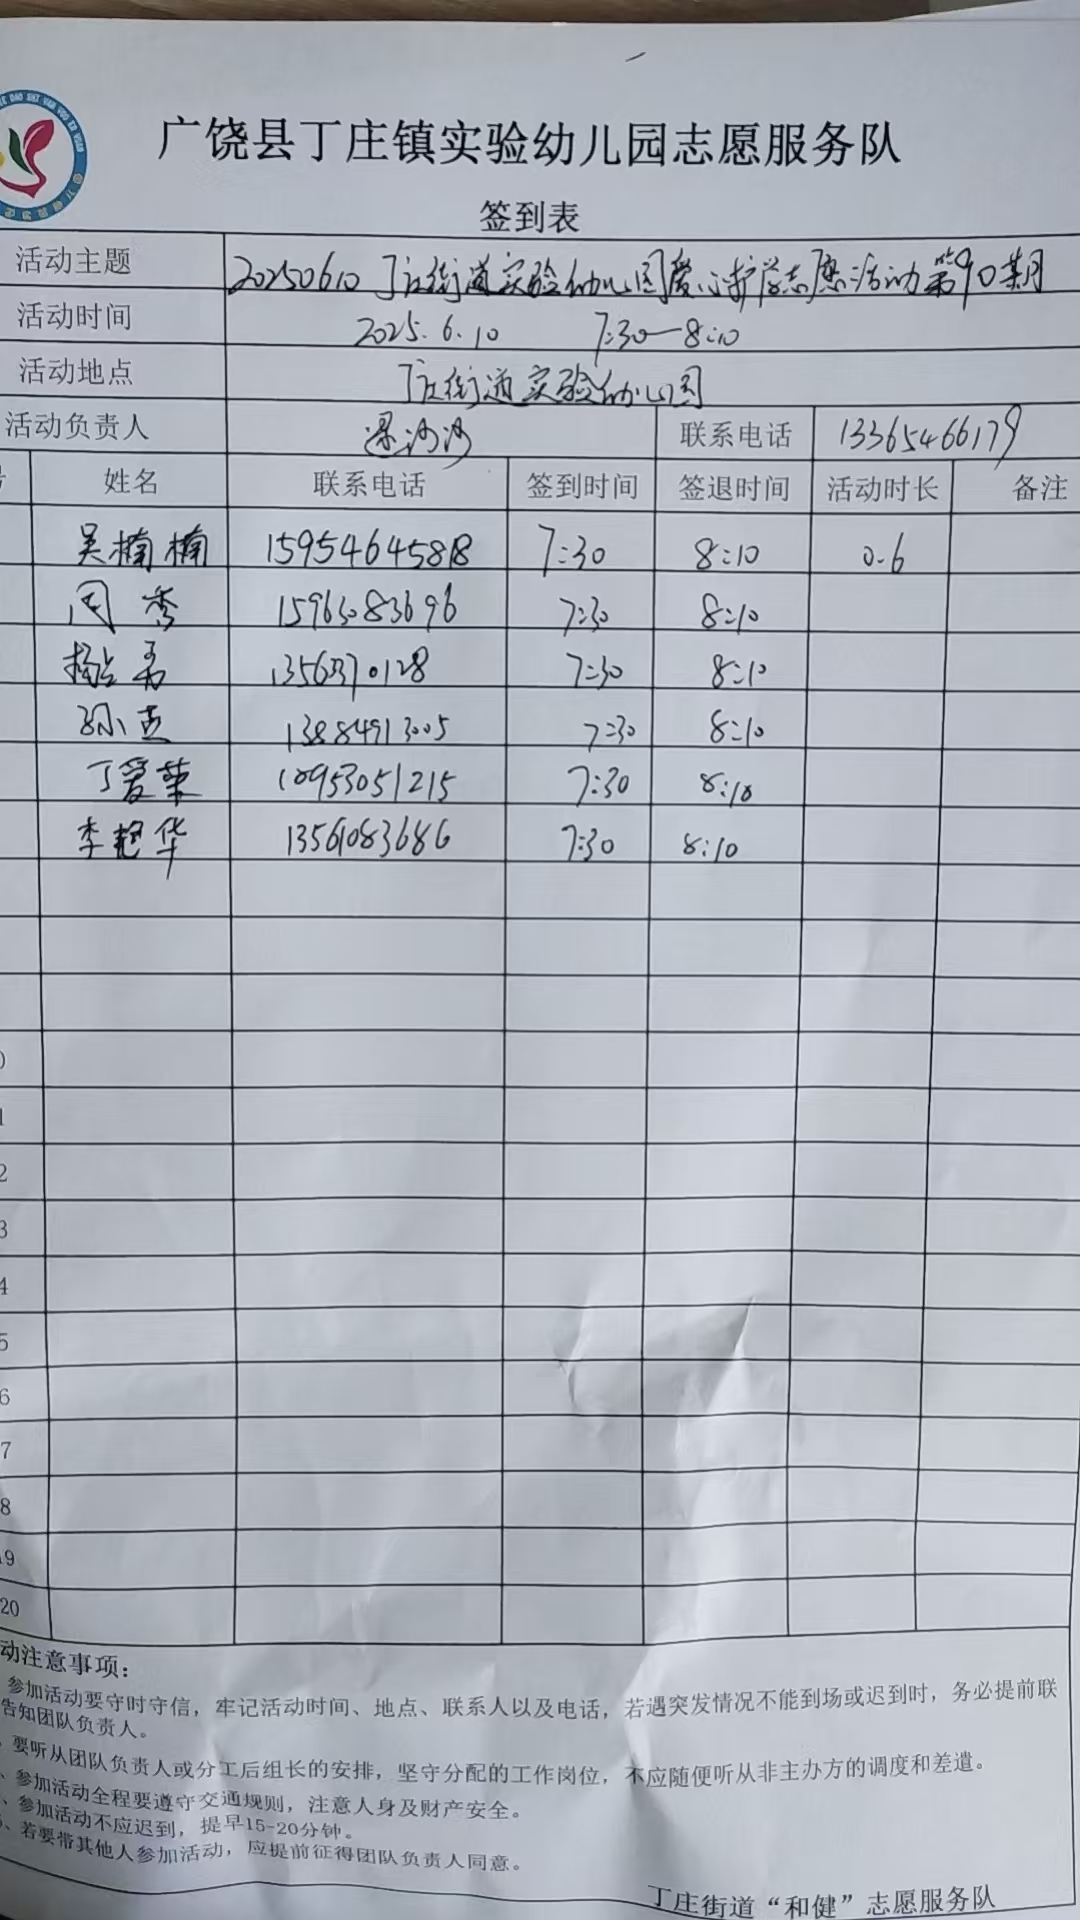 广饶县丁庄镇实验幼儿园志愿服务队
签到表
活动主题 20250610丁庄街道实验幼儿园爱心护学志愿活动第90期
活动时间 2025.6.10 7:30—8:10
活动地点 丁庄街道实验幼儿园
活动负责人 梁沙沙 联系电话 13365466179
姓名 联系电话 签到时间 签退时间 活动时长 备注
吴楠楠 15954645818 7:30 8:10 0.6
周秀 15963083696 7:30 8:10
7:30 8:10
孙志 13884913005 7:30 8:10
丁爱荣 18953051215 7:30 8:10
李艳华 13561083686 7:30 8:10
0
1
2
3
4
5
6
7
8
19
20
动注意事项:
参加活动要守时守信，牢记活动时间、地点、联系人以及电话，若遇突发情况不能到场或迟到时，务必提前联
告知团队负责人。
、要听从团队负责人或分工后组长的安排，坚守分配的工作岗位，不应随便听从非主办方的调度和差遣。
、参加活动全程要遵守交通规则，注意人身及财产安全。
、参加活动不应迟到，提早15-20分钟。
、若要带其他人参加活动，应提前征得团队负责人同意。
丁庄街道“和健”志愿服务队